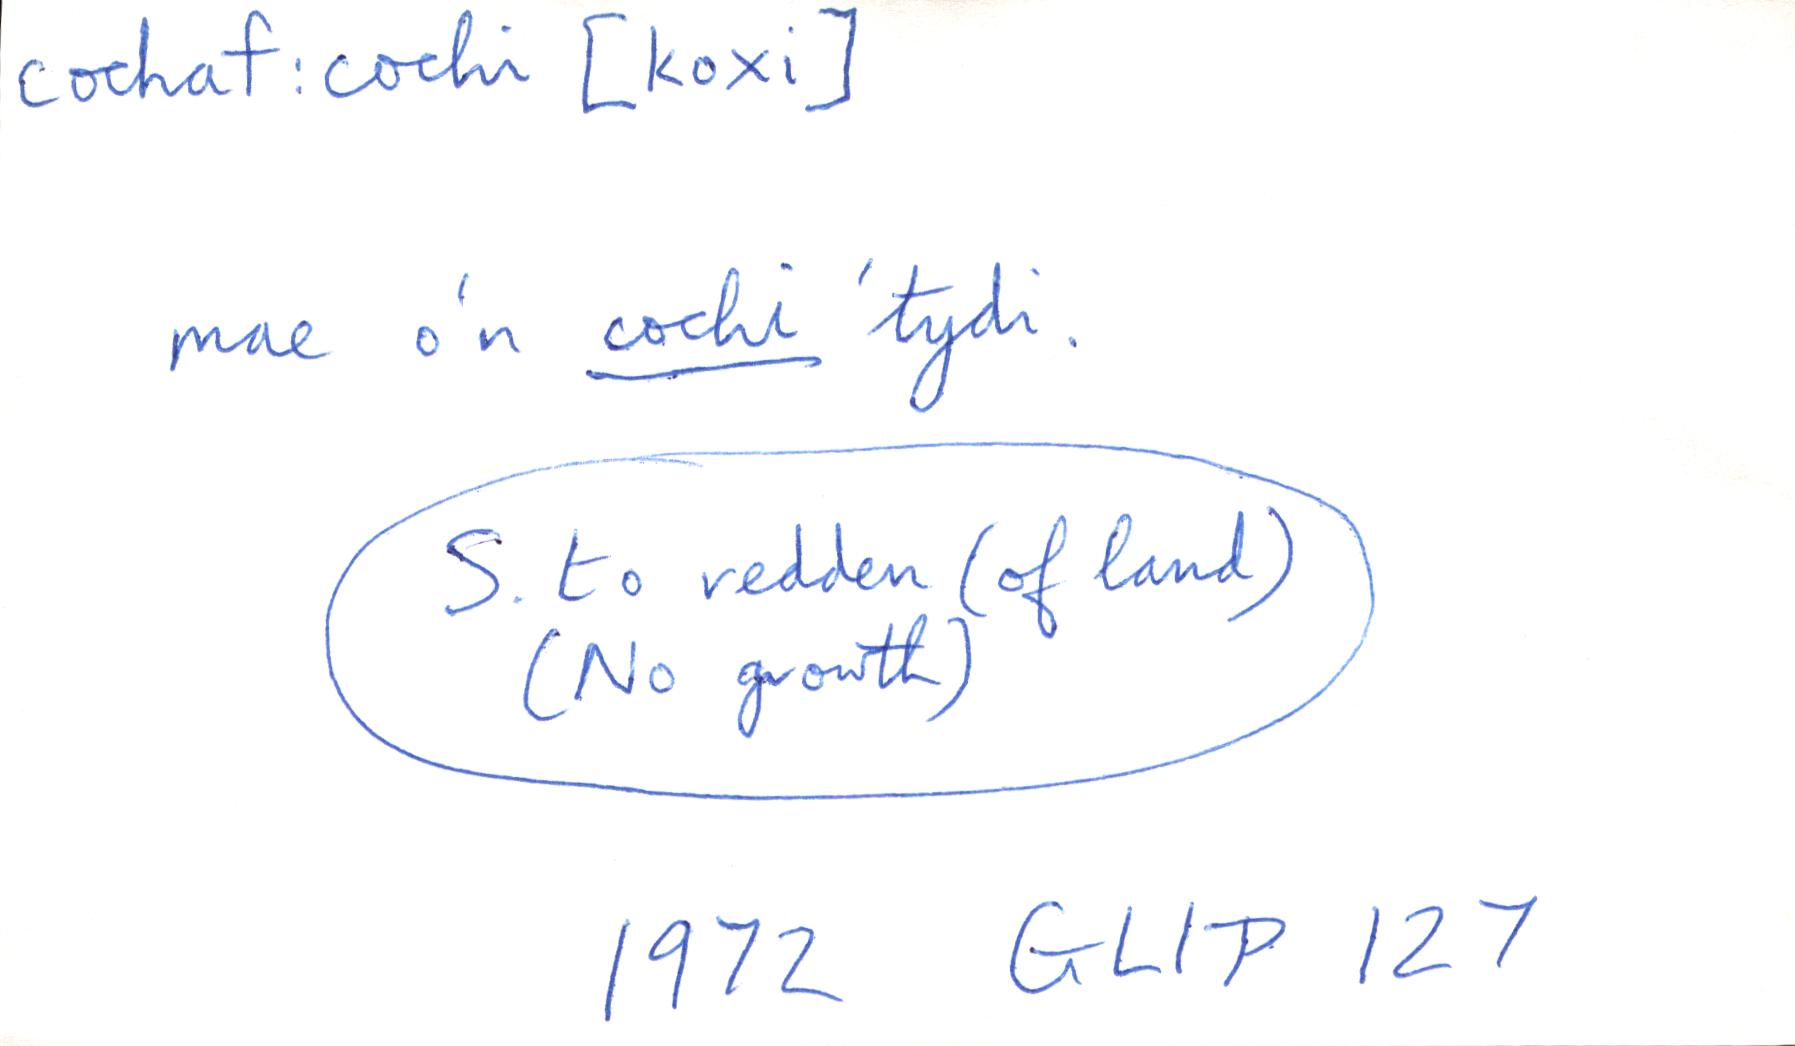 cochaf: cochi [koxi]
mae o'n cochi 'tydi.
S. to redden (of land)
(No growth)
1972 GLIP 127